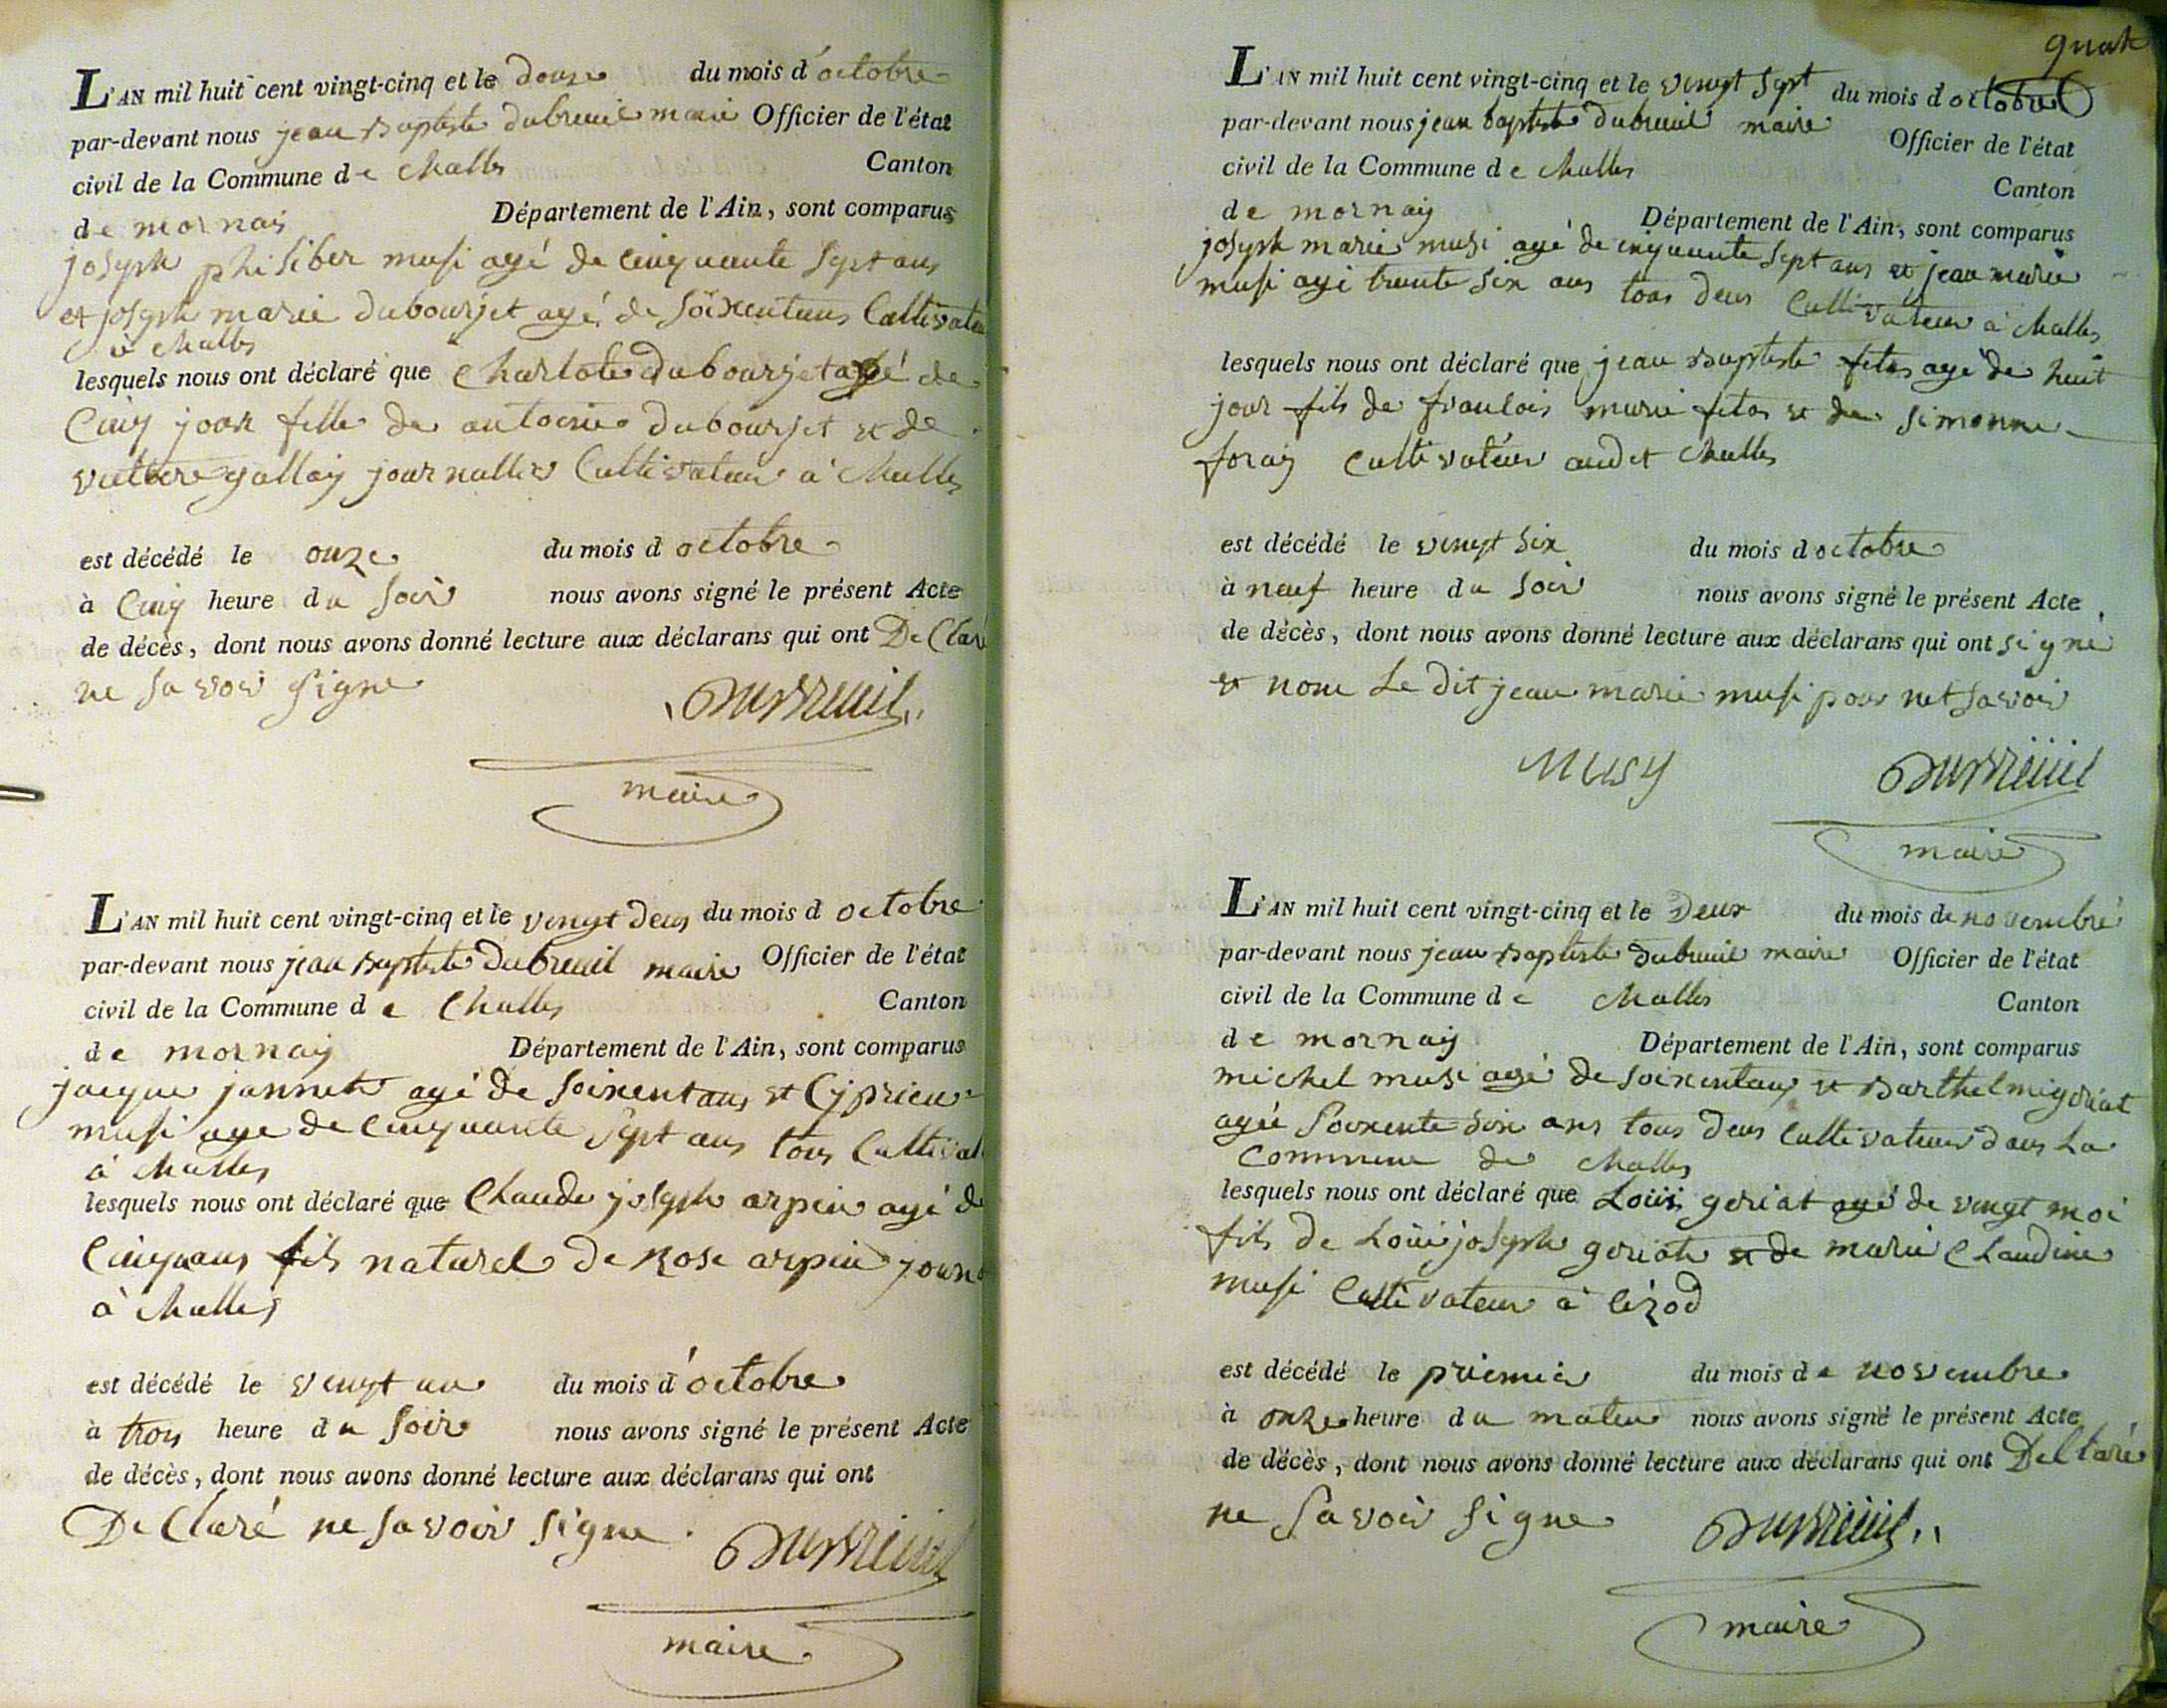 L'AN mil huit cent vingt-cinq et le douze du mois d'octobre
par-devant nous jean Baptiste dubreuil maire Officier de l'état
civil de la Commune de Challes Canton
de mornay Département de l'Ain, sont comparus
joseph philiber musi agé de cinquante sept ans
et joseph marie dubourjet agé de soixentans Cultivateu
à Challes
lesquels nous ont déclaré que Charlote dubourjet agé de
Cinq jour fille de antoine dubourjet et de
gallay journallier Cultivateur a Challes
est décédé le onze du mois d octobre
à Cinq heure du soir nous avons signé le présent Acte
de décès, dont nous avons donné lecture aux déclarans qui ont Declaré
ne savoir signe
Dubreuil
maire
L'AN mil huit cent vingt-cinq et le vingt deux du mois d octobre
par-devant nous jean Baptiste Dubreuil maire Officier de l'état
civil de la Commune de Challes Canton
de mornay Département de l'Ain, sont comparus
jacque jannet agé de soixentans et Cyprien
musi age de Cinquante sept ans tous Cultivat
à Challes
lesquels nous ont déclaré que Claude joseph arpin agé de
Cinq ans fils naturel de Rose arpin journ
à Challes
est décédé le vingt un du mois d'octobre
à trois heure du soir nous avons signé le présent Acte
de décès, dont nous avons donné lecture aux déclarans qui ont
DeClaré ne savoir signe.
Dubreuil
maire
quatr
L'AN mil huit cent vingt-cinq et le vingt sept du mois d octobre
par-devant nous jean baptiste Dubreuil maire Officier de l'état
civil de la Commune de Challes Canton
de mornay Département de l'Ain, sont comparus
joseph marie musi agé de cinquante sept ans et jean marie
musi agé trante six ans tous deux Cultivateur à Challes
lesquels nous ont déclaré que jean Baptiste agé de huit
jour fils de francois marie et de simonne
foray Cultivateur audit Challes
est décédé le vingt six du mois d octobre
à neuf heure du soir nous avons signé le présent Acte
de décès, dont nous avons donné lecture aux déclarans qui ont signé
et nom Le dit jean marie musi pour net savoir
MUSY Dubreuil
maire
L'AN mil huit cent vingt-cinq et le Deux du mois de novembre
par-devant nous jean Baptiste Dubreuil maire Officier de l'état
civil de la Commune de Challes Canton
de mornay Département de l'Ain, sont comparus
michel musi agé de soixentans et Barthelmi goriat
agée soixente six ans tous deux Cultivateur dans La
Commune de Challes
lesquels nous ont déclaré que Louis goriat agé de vingt moi
fils de Louis joseph goriat et de marie Claudine
musi Cultivateur à Cizod
est décédé le priemier du mois de novembre
à onze heure du matin nous avons signé le présent Acte
de décès, dont nous avons donné lecture aux déclarans qui ont DeClaré
ne savoir signe Dubreuil
maire